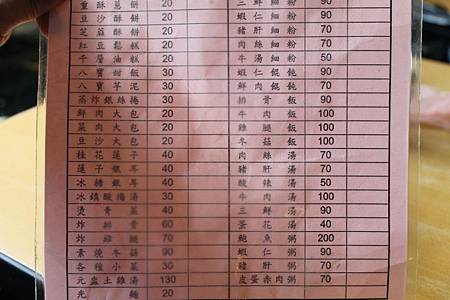 重酥蔥餅 20 三鮮細粉 90
豆沙酥餅 20 蝦仁細粉 90
芝蔴酥餅 20 豬肝細粉 70
紅豆鬆糕 20 肉絲細粉 70
千層油糕 20 牛肉細粉 50
八寶甜飯 30 蝦仁餛飩 90
八寶芋泥 30 鮮肉餛飩 70
蒸炸銀絲捲 30 排骨飯 90
鮮肉大包 20 牛肉飯 100
菜肉大包 20 雞腿飯 100
豆沙大包 20 冬菇飯 100
桂花蓮子 40 肉絲湯 70
蓮子銀耳 30 豬肝湯 70
冰糖銀耳 40 酸辣湯 50
冰鎮酸梅湯 30 牛肉湯 100
燙青菜 40 三鮮湯 90
炸排骨 60 蛋花湯 40
炸雞腿 70 鮑魚粥 200
素燒冬菇 90 蝦仁粥 90
各種小菜 30 豬肝粥 70
元盅土雞湯 130 皮蛋赤肉粥 70
光麵 20